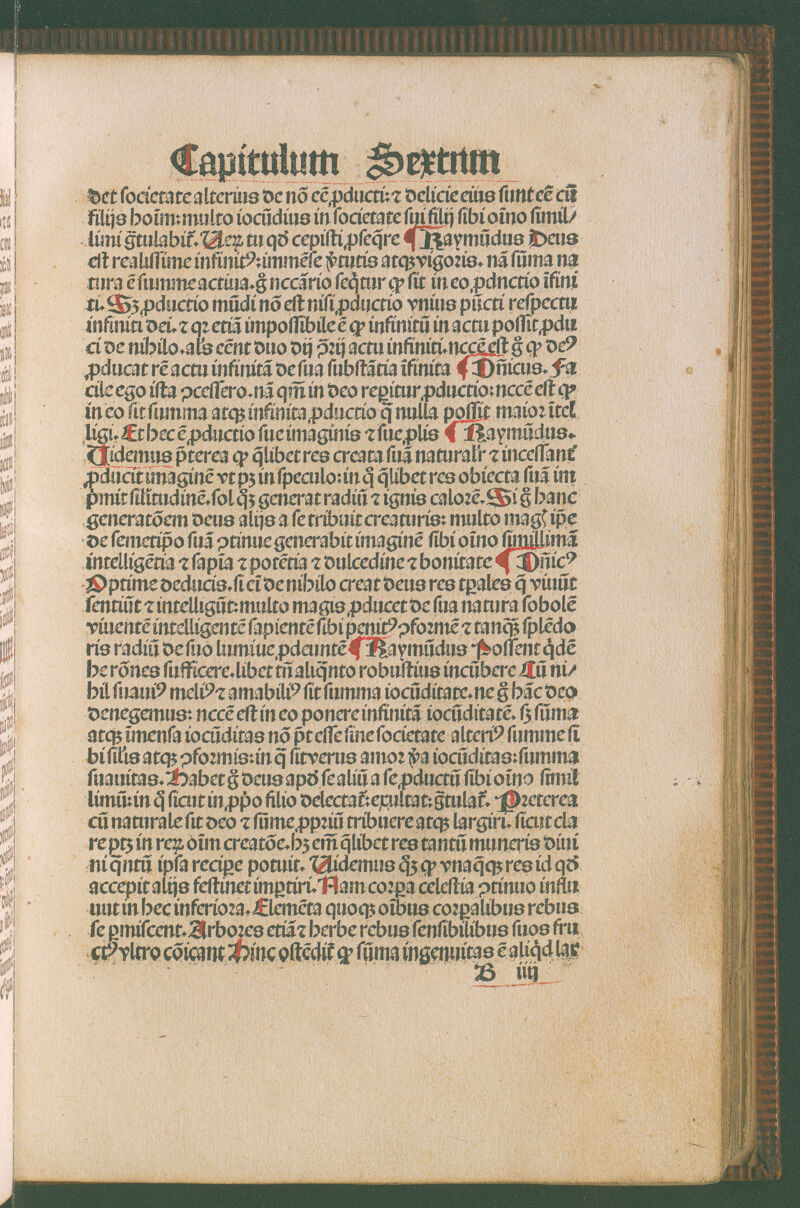 Capitulum Sextum
det societate alterius de nō eē ꝓducti: ⁊ delicie eius sunt eē cū
filijs hoīm: multo iocūdius in societate sui filij sibi oīno simil/
limi g̃tulabit᷑. Ueꝝ tu qđ cepisti ꝓseq̄re ¶ Raymūdus Deus
est realissime infinitꝰ: immēse v̓tutis atqꝫ vigoris. nā sūma na
tura ē summe actiua. g̊ nccārio seq̇tur ꝙ sit in eo ꝓdnctio īfini
ti. Sꝫ ꝓductio mūdi nō est nisi ꝓductio vnius pūcti respectu
infiniti dei. ⁊ qꝛ etiā impossibile ē ꝙ infinitū in actu possit ꝓdu
ci de nihilo. al's eēnt duo dij ꝯrij actu infiniti. nccē est g̊ ꝙ deꝰ
ꝓducat rē actu infinitā de sua substātia īfinita ¶ Dn̄icus. Fa
cile ego ista ꝯcessero. nā qm̄ in deo reꝑitur ꝓductio: nccē est ꝙ
in eo sit summa atqꝫ infinita ꝓductio q̄ nulla possit maior ītel
ligi. Et hec ē ꝓductio sue imaginis ⁊ sue ꝓlis ¶ Raymūdus.
Uidemus p̄terea ꝙ q̄libet res creata suā naturalr̄ ⁊ incessant᷑
ꝓducit imaginē vt pꝫ in speculo: in q̊ q̄libet res obiecta suā im
p̄mit sil̄itudinē. sol qꝫ generat radiū ⁊ ignis calorē. Si g̊ hanc
generatōem deus alijs a se tribuit creaturis: multo mag̃ ip̄e
de semetip̄o suā ꝯtinue generabit imaginē sibi oīno simillimā
intelligētia ⁊ sapīa ⁊ potētia ⁊ dulcedine ⁊ bonitate ¶ Dn̄icꝰ
Optime deducis. si eī de nihilo creat deus res tꝑales q̄ viuūt
sentiūt ⁊ intelligūt: multo magis ꝓducet de sua natura sobolē
viuentē intelligentē sapientē sibi penitꝰ ꝯformē ⁊ tanqꝫ splēdo
ris radiū de suo lumiue ꝓdeuntē ¶ Raymūdus Possent q̇dē
he rōnes sufficere. libet tn̄ aliq̄nto robustius incūbere Cū ni/
hil suauiꝰ meliꝰ ⁊ amabiliꝰ sit summa iocūditate. ne g̊ hāc deo
denegemus: nccē est in eo ponere infinitā iocūditatē. sꝫ sūma
atqꝫ īmensa iocūditas nō p̄t esse sine societate alteriꝰ summe si
bi sil̄is atqꝫ ꝯformis: in q̄ sit verus amor v̓a iocūditas: summa
suauitas. Habet g̊ deus apđ se aliū a se ꝓductū sibi oīno simil
limū: in q̊ sicut in ꝓp̄o filio delectat᷑: exultat: g̃tulat᷑. Preterea
cū naturale sit deo ⁊ sūme ꝓpriū tribuere atqꝫ largiri. sicut cla
re ptꝫ in reꝝ oīm creatōe. hꝫ em̄ q̄libet res tantū muneris diui
ni q̄ntū ipsa recipe potuit. Uidemus qꝫ ꝙ vnaq̄qꝫ res id qđ
accepit alijs festinet imꝑtiri. Nam corꝑa celestia ꝯtinuo influ
uut in hec inferiora. Elemēta quoqꝫ oībus corꝑalibus rebus
se ꝑmiscent. Arbores etiā ⁊ herbe rebus sensibilibus suos fru
ctꝰ vltro cōicant Hinc ostēdit᷑ ꝙ sūma ingenuitas ē aliq̇d lar
B iiij